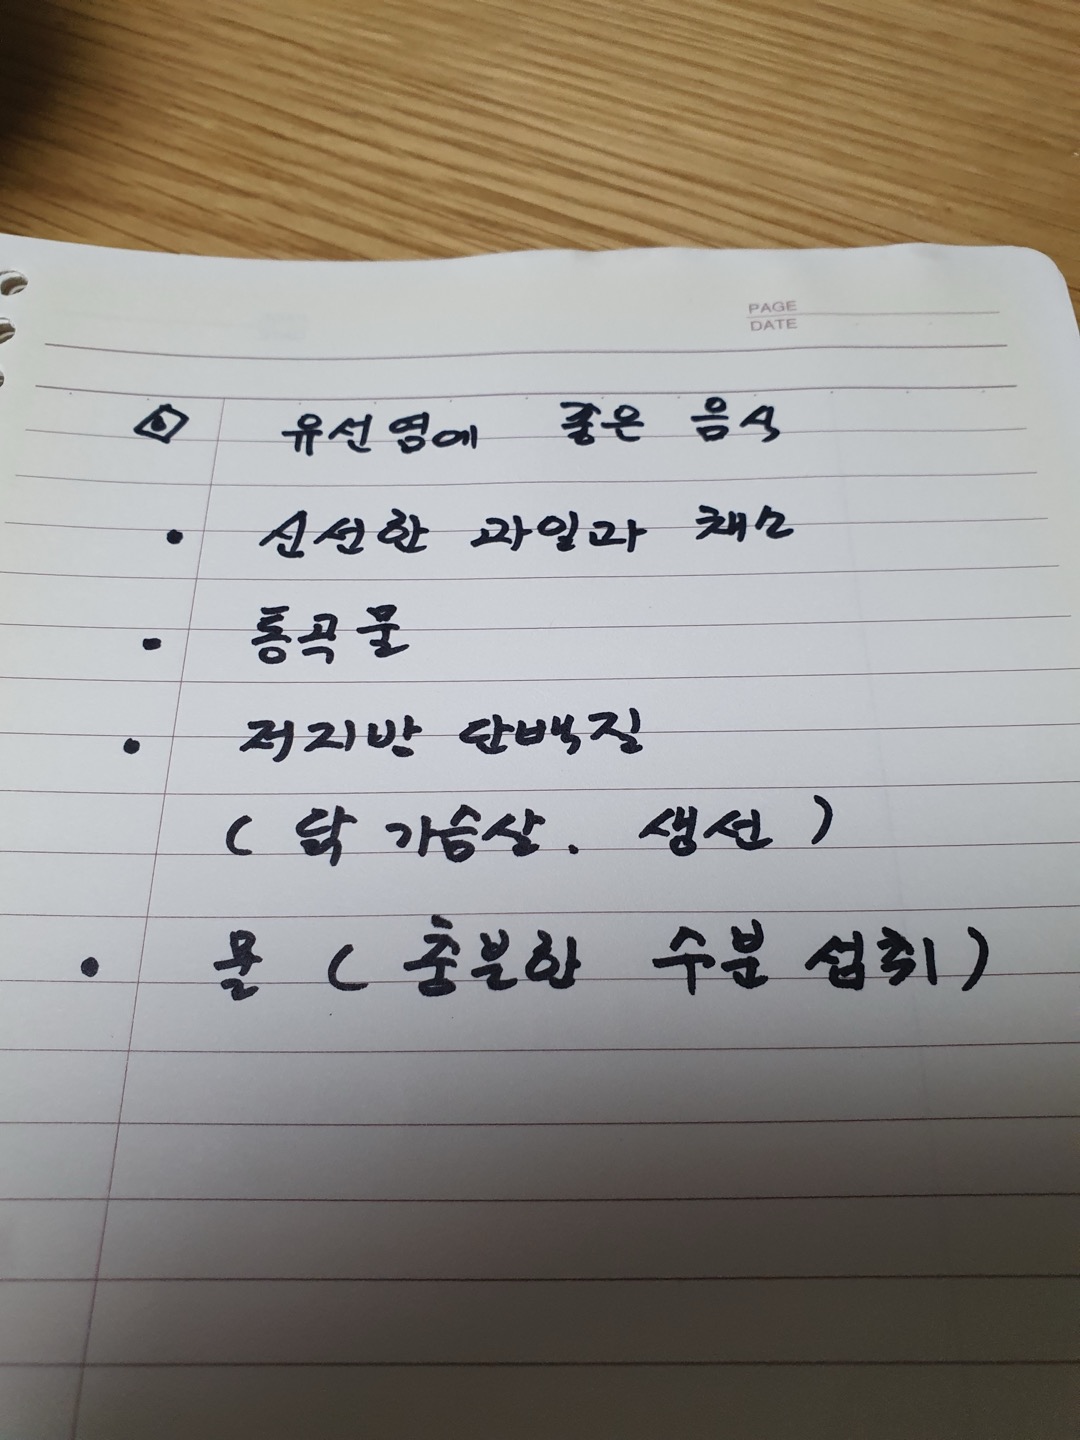 PAGE
DATE
◈ 유선염에 좋은 음식
• 신선한 과일과 채소
• 통곡물
• 저지방 단백질
( 닭 가슴살. 생선 )
• 물 ( 충분한 수분 섭취 )